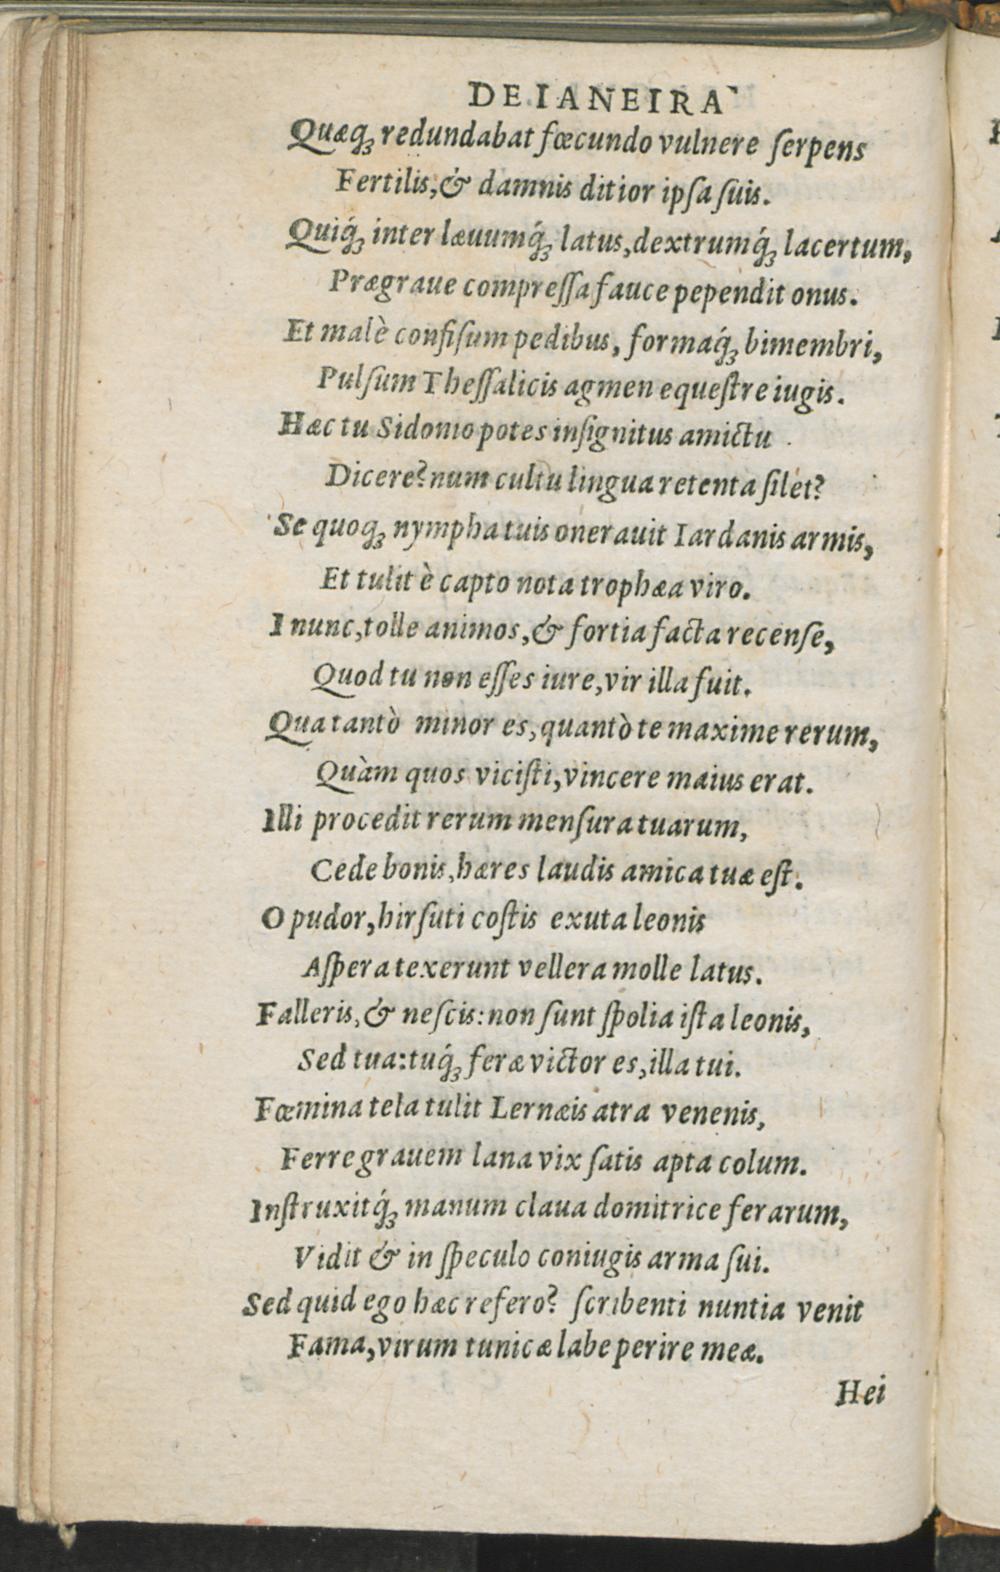 DEIANEIRA
Quæq; redundabat fœcundo vulnere ſerpens
Fertilis, & damnis ditior ipſa ſuis.
Quiq́; inter læuumq́; latus, dextrumq́; lacertum,
Prægraue compreſſa fauce pependit onus.
Et malè confiſum pedibus, formaq́; bimembri,
Pulſum Theſſalicis agmen equeſtre iugis.
Hæc tu Sidonio potes inſignitus amictu
Dicere? num cultu lingua retenta ſilet?
Se quoq; nympha tuis onerauit Iardanis armis,
Et tulit è capto nota trophæa viro.
I nunc, tolle animos, & fortia facta recenſe,
Quod tu non eſſes iure, vir illa fuit.
Qua tantò minor es, quantò te maxime rerum,
Quàm quos viciſti, vincere maius erat.
Illi procedit rerum menſura tuarum,
Cede bonis, hæres laudis amica tuæ eſt.
O pudor, hirſuti coſtis exuta leonis
Aſpera texerunt vellera molle latus.
Falleris, & neſcis: non ſunt ſpolia iſta leonis,
Sed tua: tuq́; feræ victor es, illa tui.
Fœmina tela tulit Lernæis atra venenis,
Ferre grauem lana vix ſatis apta colum.
Inſtruxitq́; manum claua domitrice ferarum,
Vidit & in ſpeculo coniugis arma ſui.
Sed quid ego hæc refero? ſcribenti nuntia venit
Fama, virum tunicæ labe perire meæ.
Hei